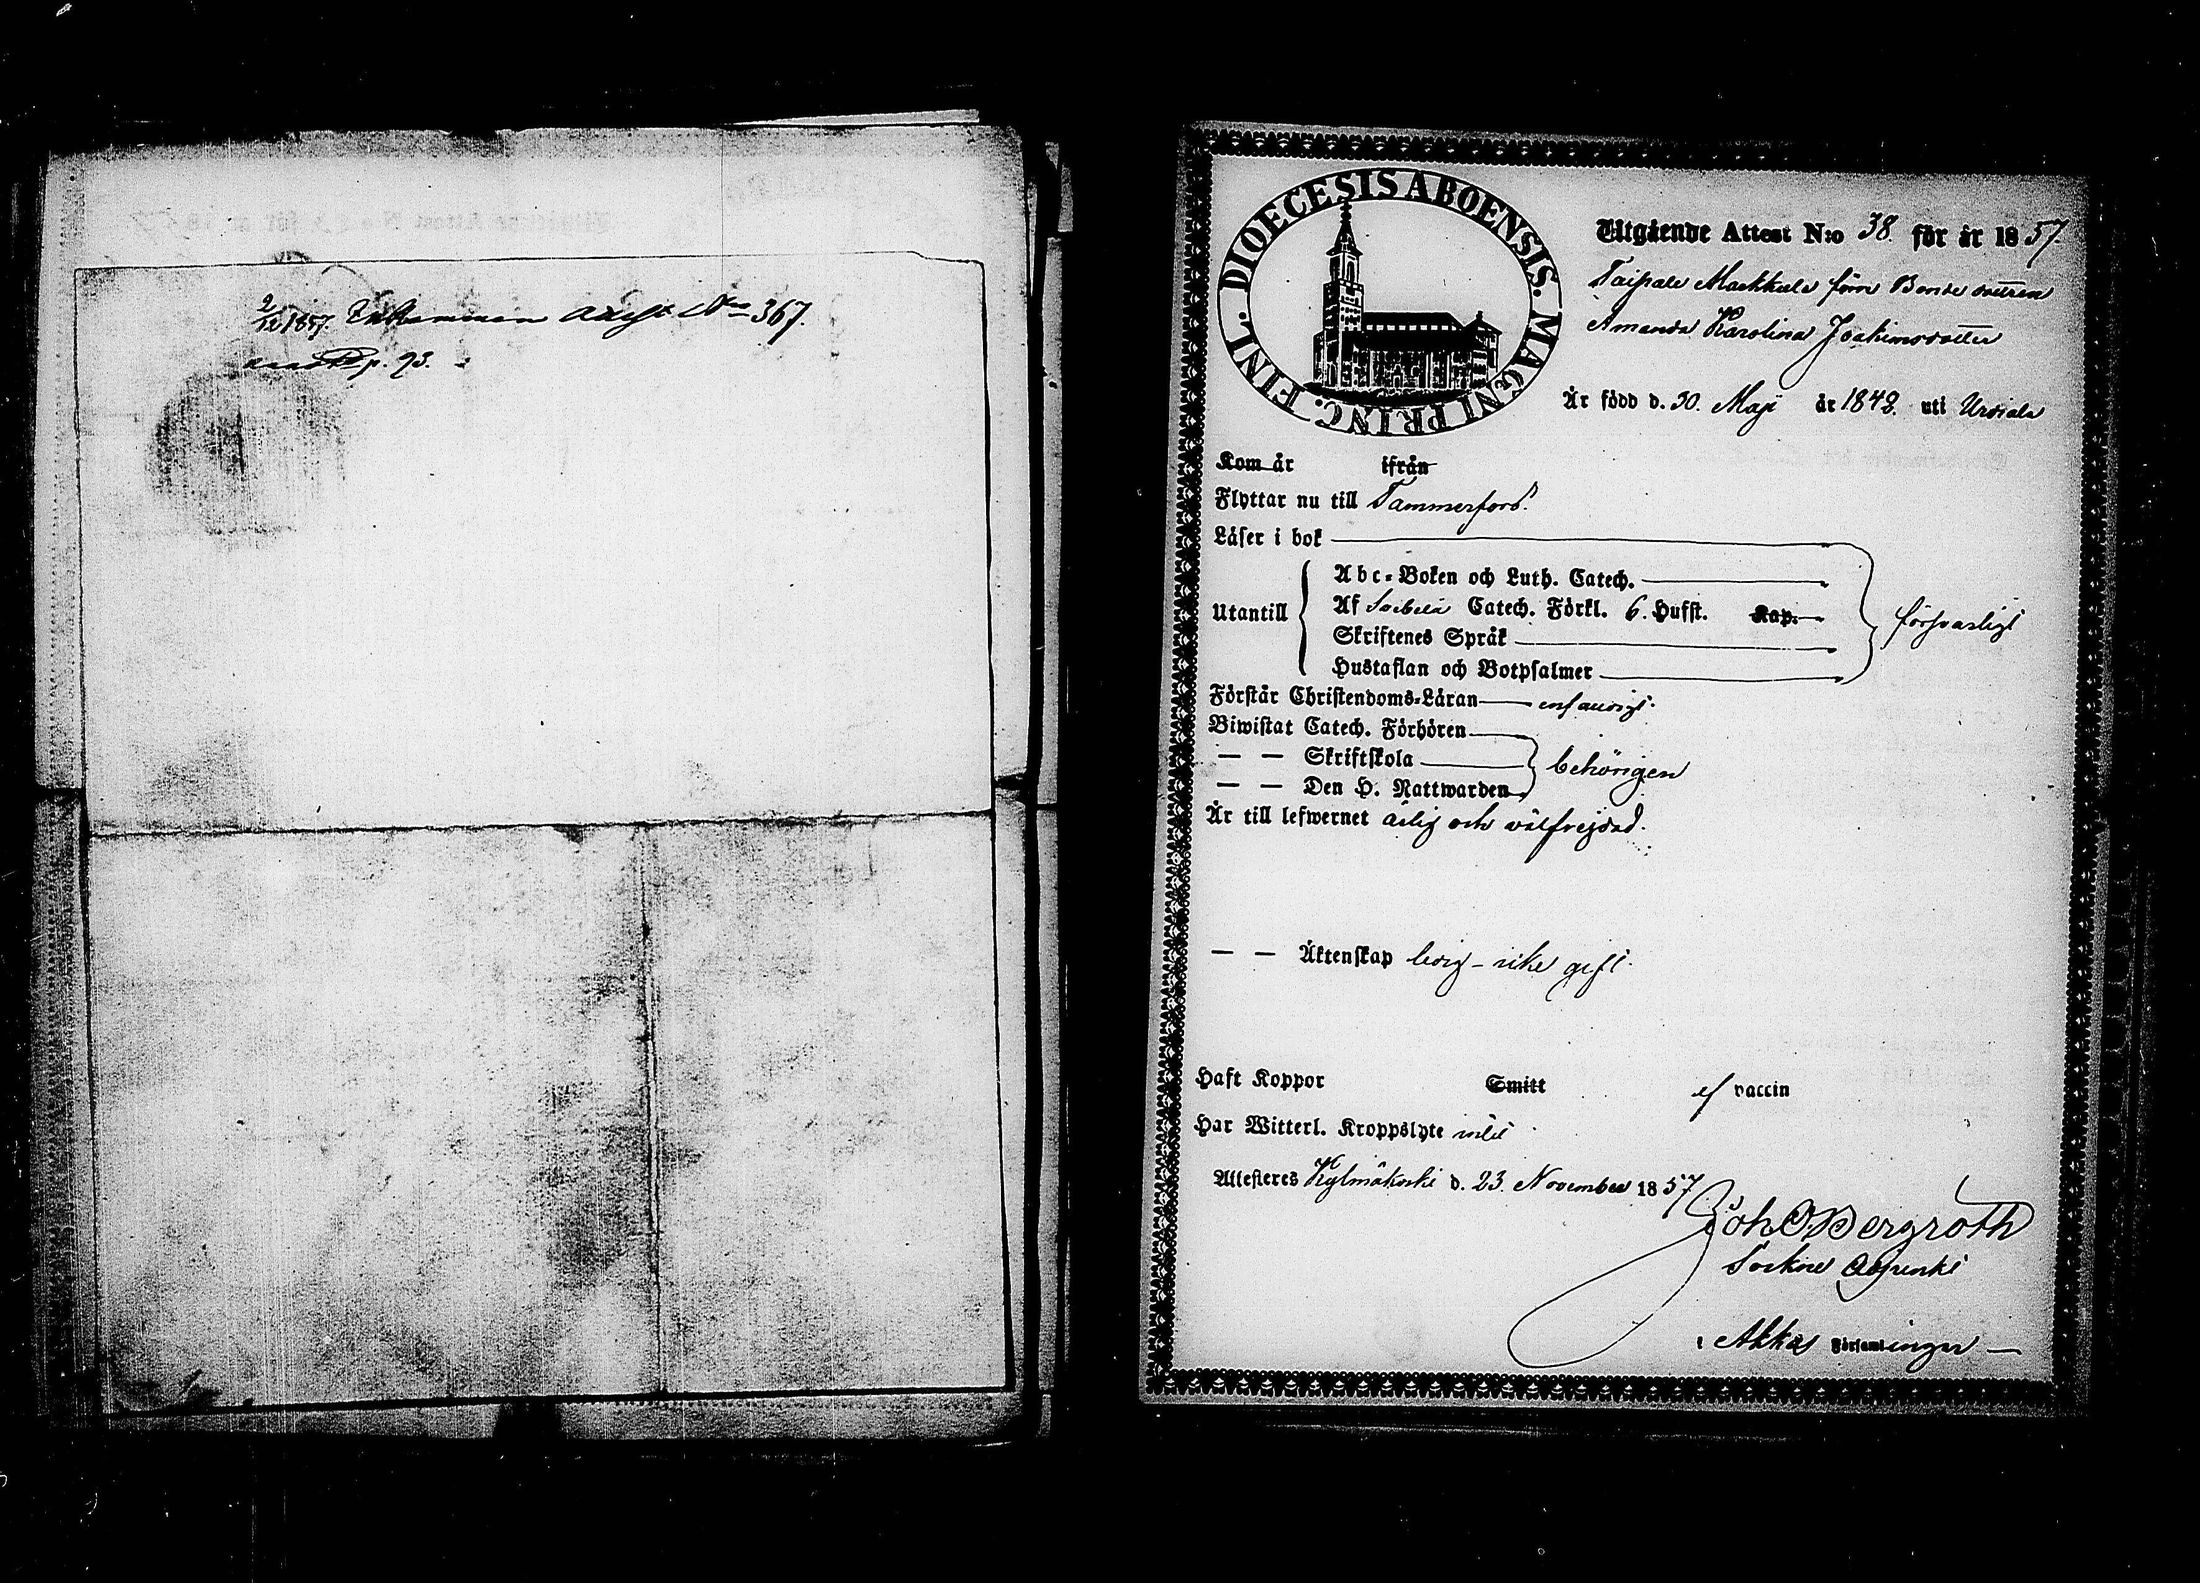 2/12 1857. Inkommen attest No 367.
p. 93.
DIOECESIS ABOENSIS. MAGNI PRINC. FINL.
Utgående Attest N:o 38. för år 1857.
Taipale Markkula förre Bonde dottren
Amanda Karolina Joakimsdotter
År född d. 30. Maji år 1848. uti Urdiala
Kom år ifrån
Flyttar nu till Tammerfors.
Läser i bok
Abc-Boken och Luth. Catech.
Utantill
Af Svebelii Catech. Förkl. 6. Hufst. Kap.
Skriftenes Språk
försvarligt
Hustaflan och Botpsalmer
Förstår Christendoms-Läran enfaldigt.
Biwistat Catech. Förhören
— — Skriftskola
behörigen
— — Den H. Nattwarden
Är till lefwernet ärlig och välfrejdad.
— — Äktenskap ledig - icke gift.
Haft Koppor Smitt af vaccin
Har Witterl. Kroppslyte intet
Attesteres Kylmäkoski d. 23. November 1857
Joh O Bergroth
Sockne Adjunkt
i Akkas Församlingen